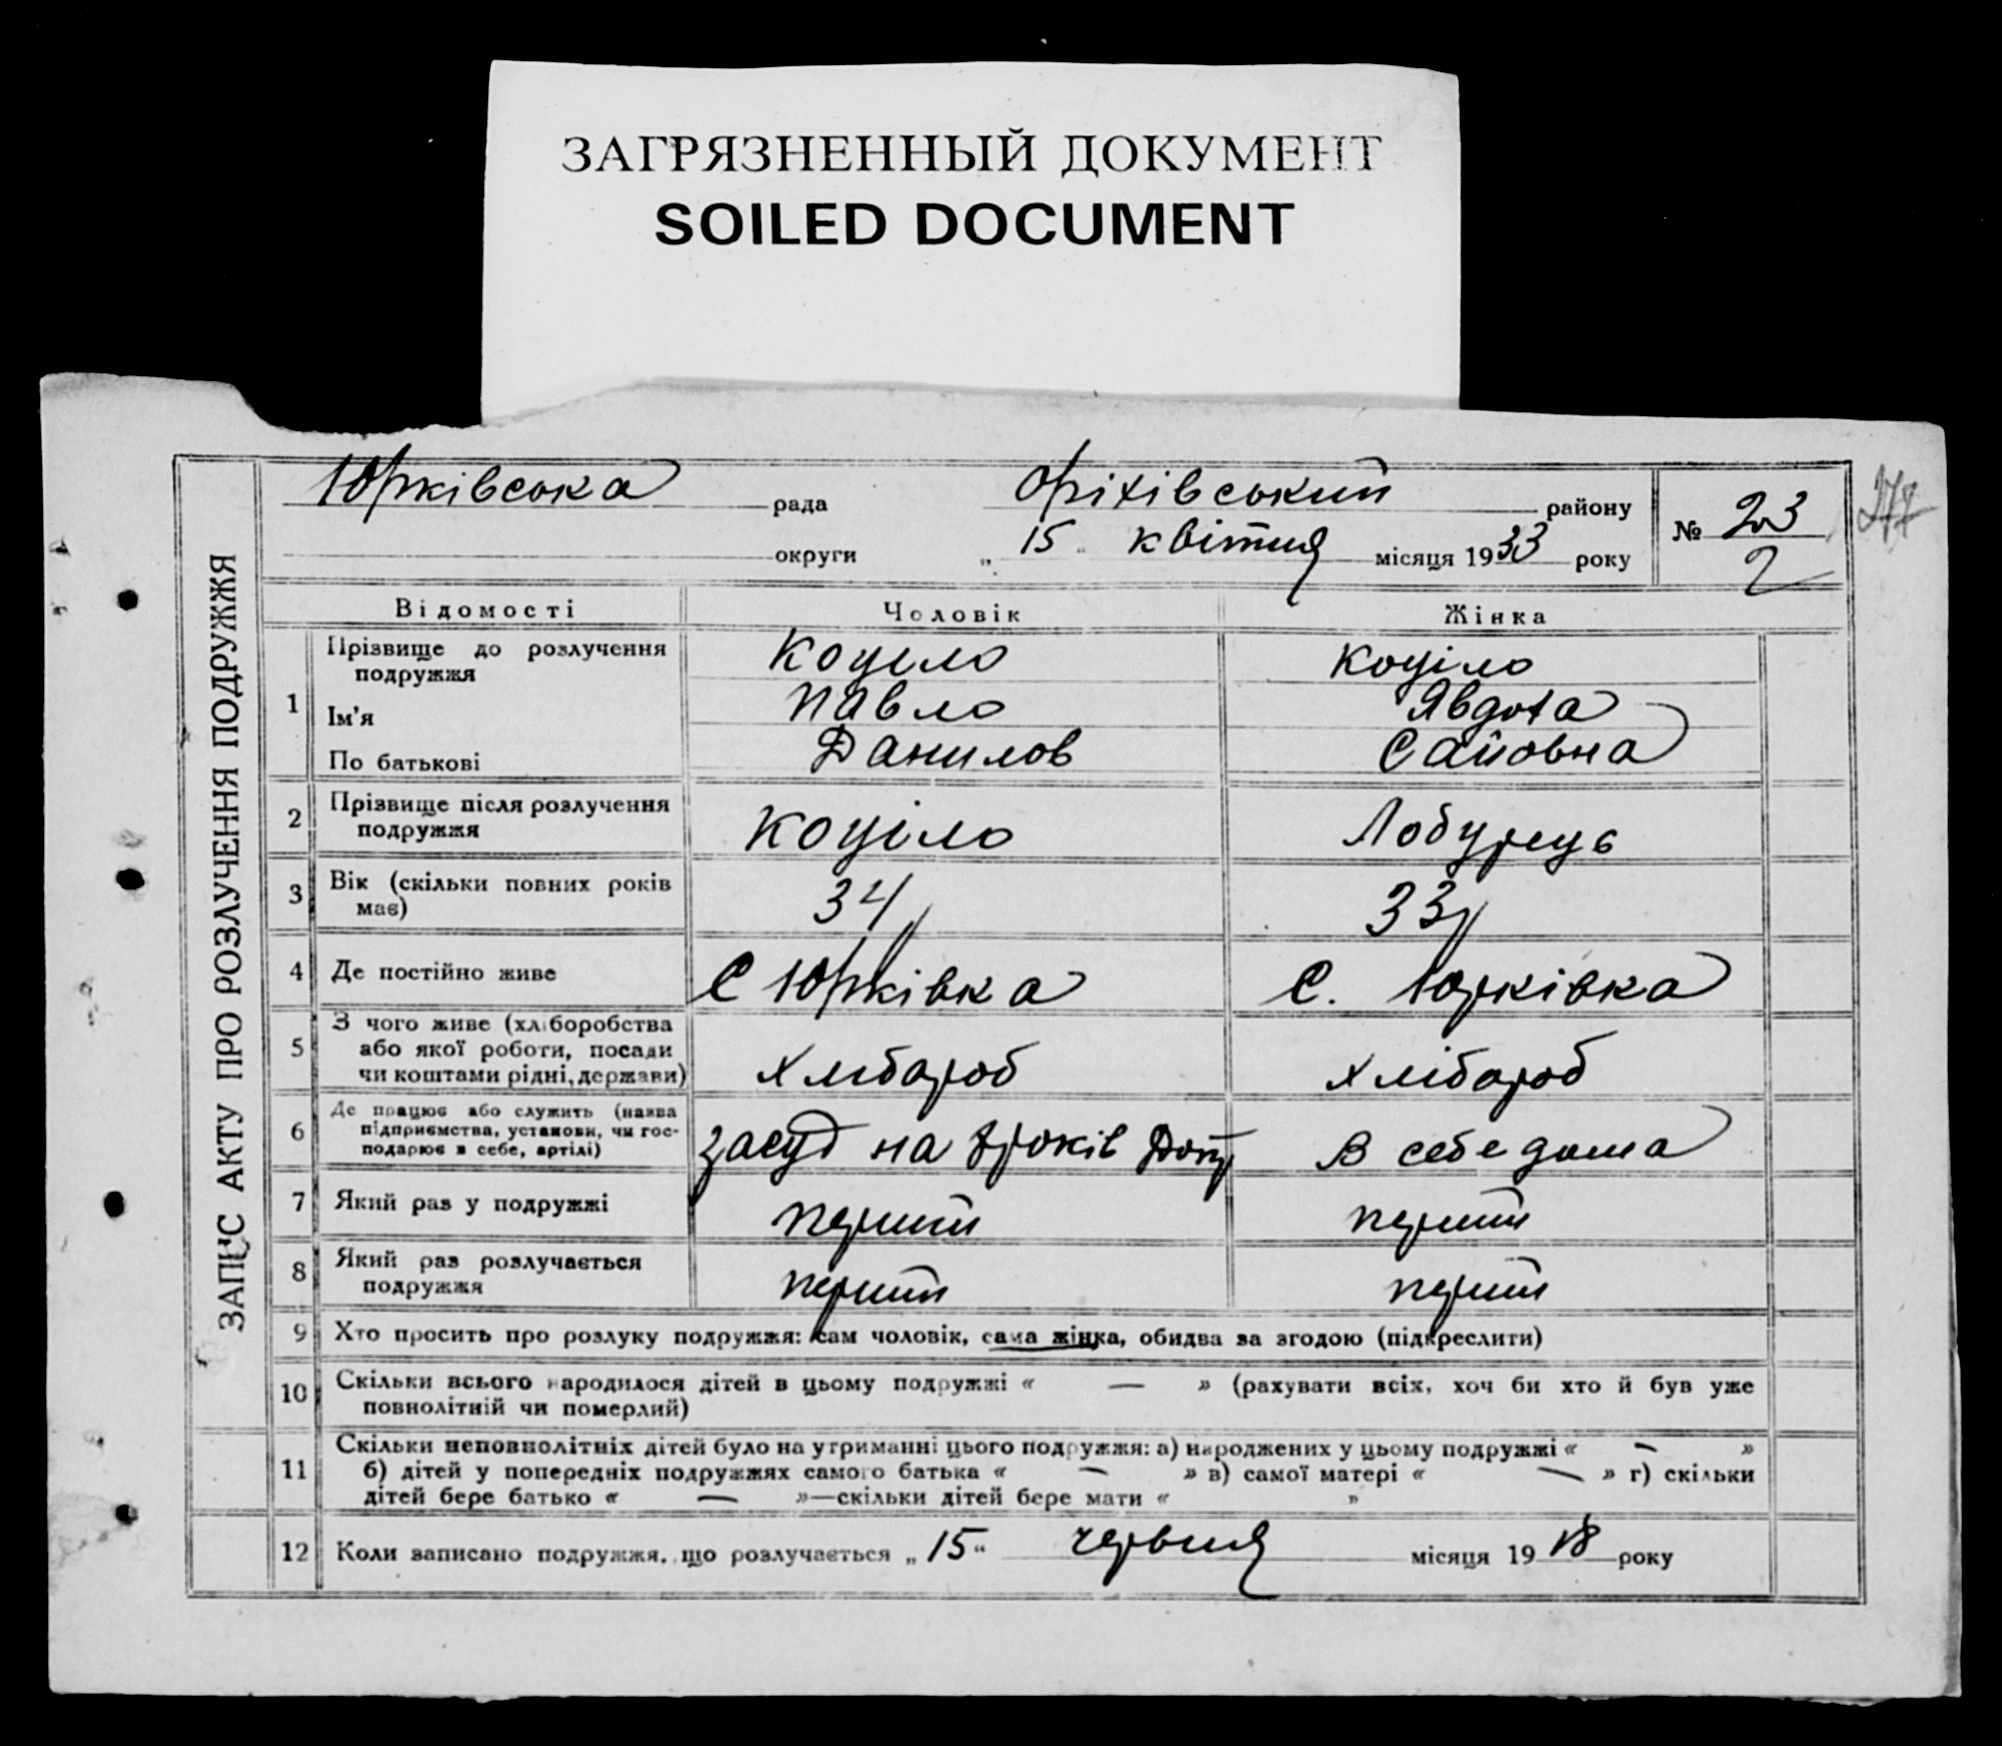 ЗАГРЯЗНЕННЫЙ ДОКУМЕНТ
SOILED DOCUMENT
ЗАПИС АКТУ ПРО РОЗЛУЧЕННЯ ПОДРУЖЖЯ
Юрківська рада Оріхівський району № 23
округи „ 15 " квітня місяця 1933 року 2
Відомості Чоловік Жінка
1 Прізвище до розлучення подружжя Коціло Коціло
Ім'я Павло Явдоха
По батькові Данилов
2 Прізвище після розлучення Коціло
подружжя
3 Вік (скільки повних років 34 33
має)
4 Де постійно живе С Юрківка С. Юрківка
5 З чого живе (хліборобства
або якої роботи, посади хлібороб хлібороб
чи коштами рідні, держави)
6 Де працює або служить (назва
підприємства, установи, чи гос- засуд на років В себе дома
подарює в себе, артілі)
7 Який раз у подружжі перший перший
8 Який раз розлучається перший перший
подружжя
9 Хто просить про розлуку подружжя: сам чоловік, сама жінка, обидва за згодою (підкреслити)
10 Скільки всього народилося дітей в цьому подружжі « — » (рахувати всіх, хоч би хто й був уже
повнолітній чи померлий)
11 Скільки неповнолітніх дітей було на утриманні цього подружжя: а) народжених у цьому подружжі « — »
б) дітей у попередніх подружжях самого батька « — » в) самої матері « — » г) скільки
дітей бере батько « — »—скільки дітей бере мати « »
12 Коли записано подружжя, що розлучається „ 15 " червня місяця 1918 року